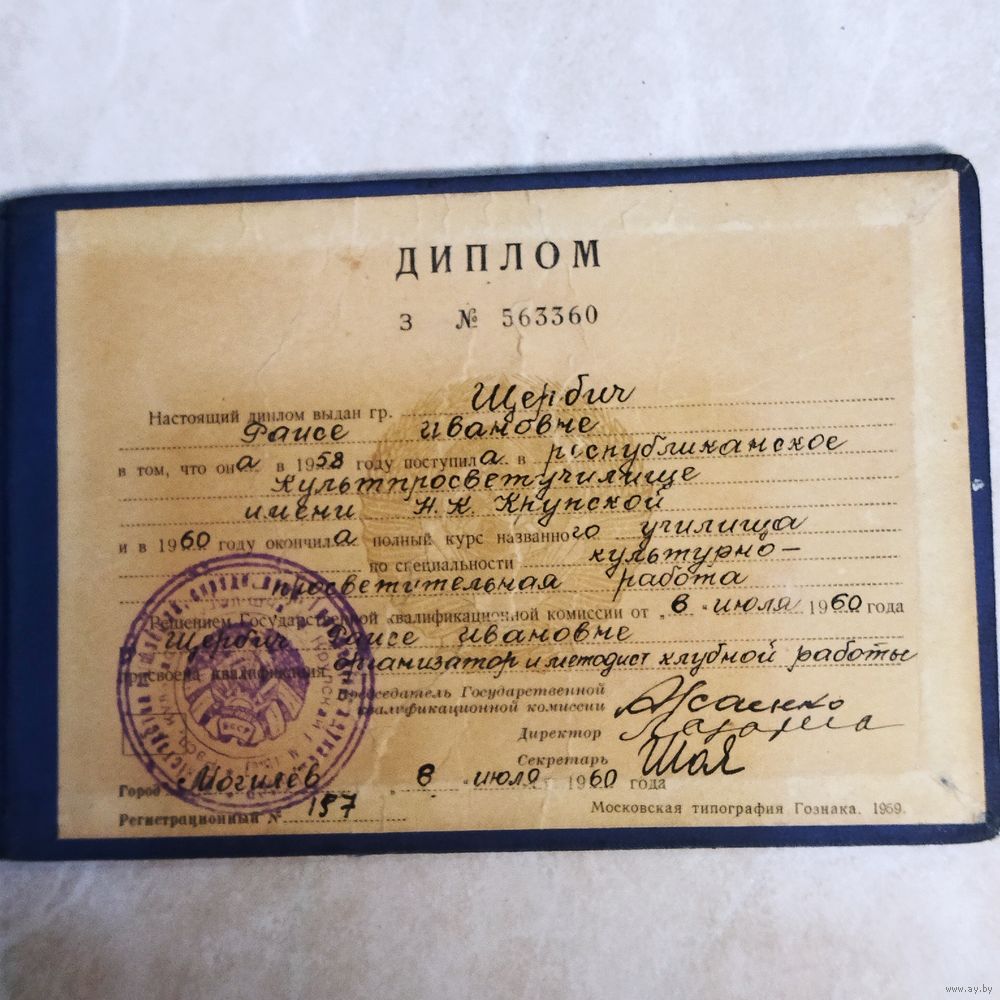 ДИПЛОМ
З № 563360
Настоящий диплом выдан гр. Щербич
Раисе Ивановне
в том, что она в 1958 году поступила в республиканское
культпросветучилище
имени Н.К. Крупской
и в 1960 году окончила полный курс названного училища
по специальности культурно-
просветительная работа
Решением Государственной квалификационной комиссии от „8“ июля 1960 года
Щербич Раисе Ивановне
присвоена квалификация организатор и методист клубной работы
Председатель Государственной
квалификационной комиссии
Директор
Секретарь
Город Могилев „8“ июля 1960 года
Регистрационный № 157
Московская типография Гознака. 1959.
www.ay.by